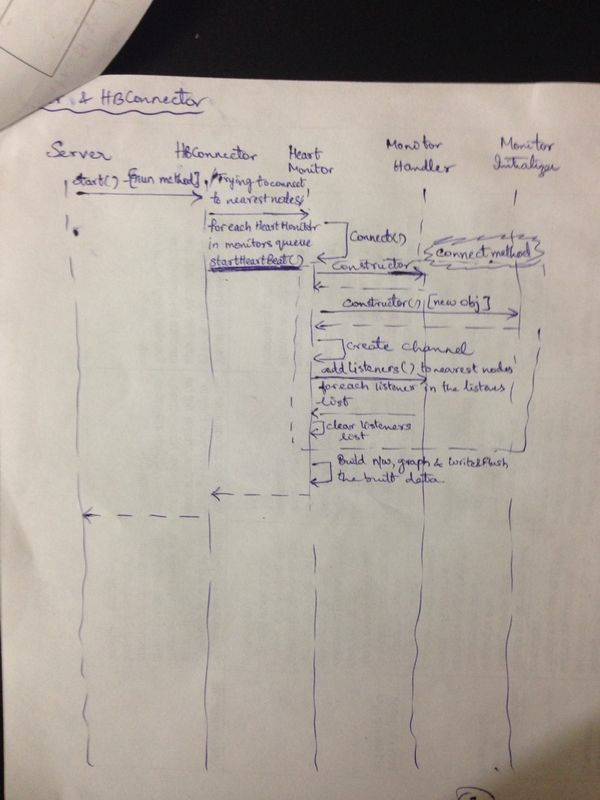 & HBConnector
Server
HBConnector
Heart
Monitor
Monitor
Handler
Monitor
Initializer
start() - [run method]
Trying to connect
to nearest nodes
for each HeartMonitor
in monitors queue
startHeartBeat()
Connect()
connect method
Constructor
Constructor() [new obj]
Create channel
add listeners() to nearest nodes
for each listener in the
list
clear listeners
list
Build n/w, graph & Write&Flush
the built data